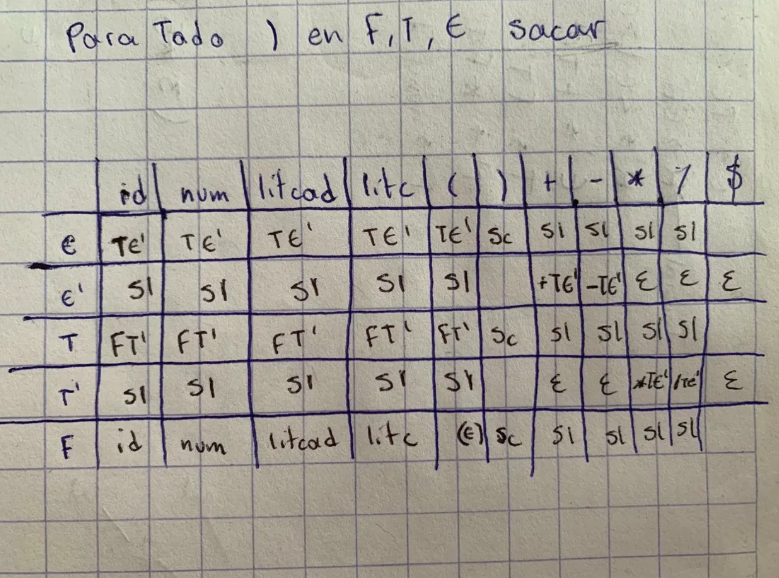 Para Todo ) en F, T, E sacar
id num litcad litc ( ) + - * / $
E TE' TE' TE' TE' TE' Sc Sl Sl Sl Sl
E' Sl Sl Sl Sl Sl +TE' -TE' ε ε ε
T FT' FT' FT' FT' FT' Sc Sl Sl Sl Sl
T' Sl Sl Sl Sl Sl ε ε *TE' /TE' ε
F id num litcad litc (E) Sc Sl Sl Sl Sl